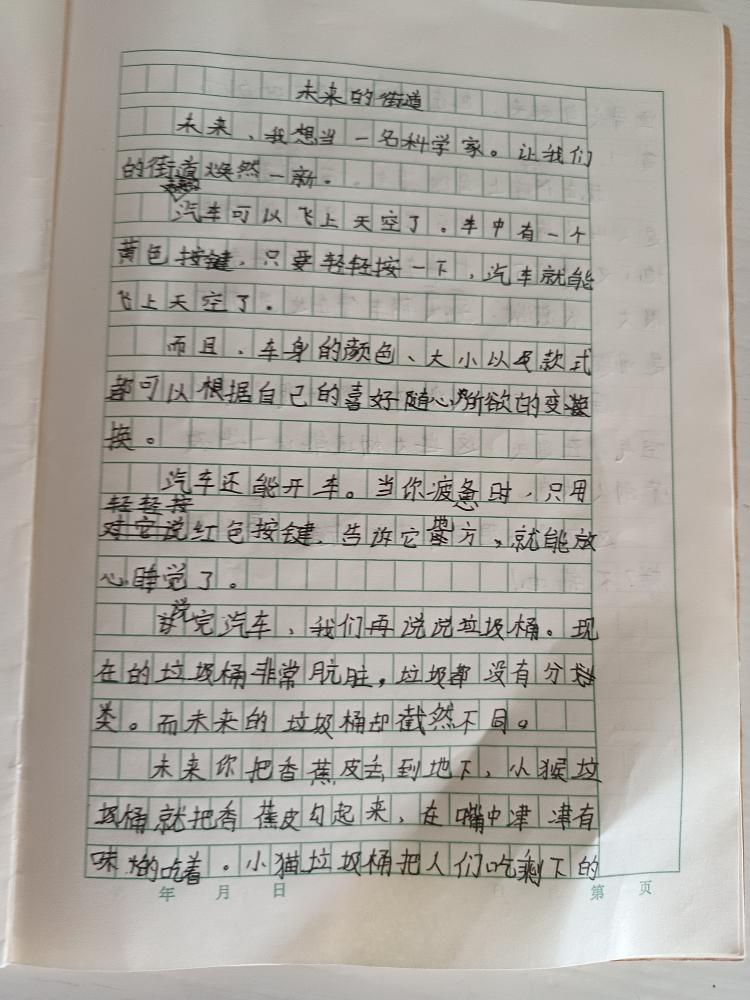 未来的街道
未来，我想当一名科学家。让我们
的街道焕然一新。
汽车可以飞上天空了。车中有一个
黄色按键，只要轻轻按一下，汽车就能
飞上天空了。
而且，车身的颜色、大小以及款式
都可以根据自己的喜好随心所欲的变
换。
汽车还能开车。当你疲惫时，只用
轻轻按
对它说红色按键，告诉它地方，就能放
心睡觉了。
说完汽车，我们再说说垃圾桶。现
在的垃圾桶非常肮脏，垃圾都没有分
类。而未来的垃圾桶却截然不同。
未来你把香蕉皮丢到地下，小猴垃
圾桶就把香蕉皮勾起来，在嘴中津津有
味的吃着。小猫垃圾桶把人们吃剩下的
年 月 日 第 页